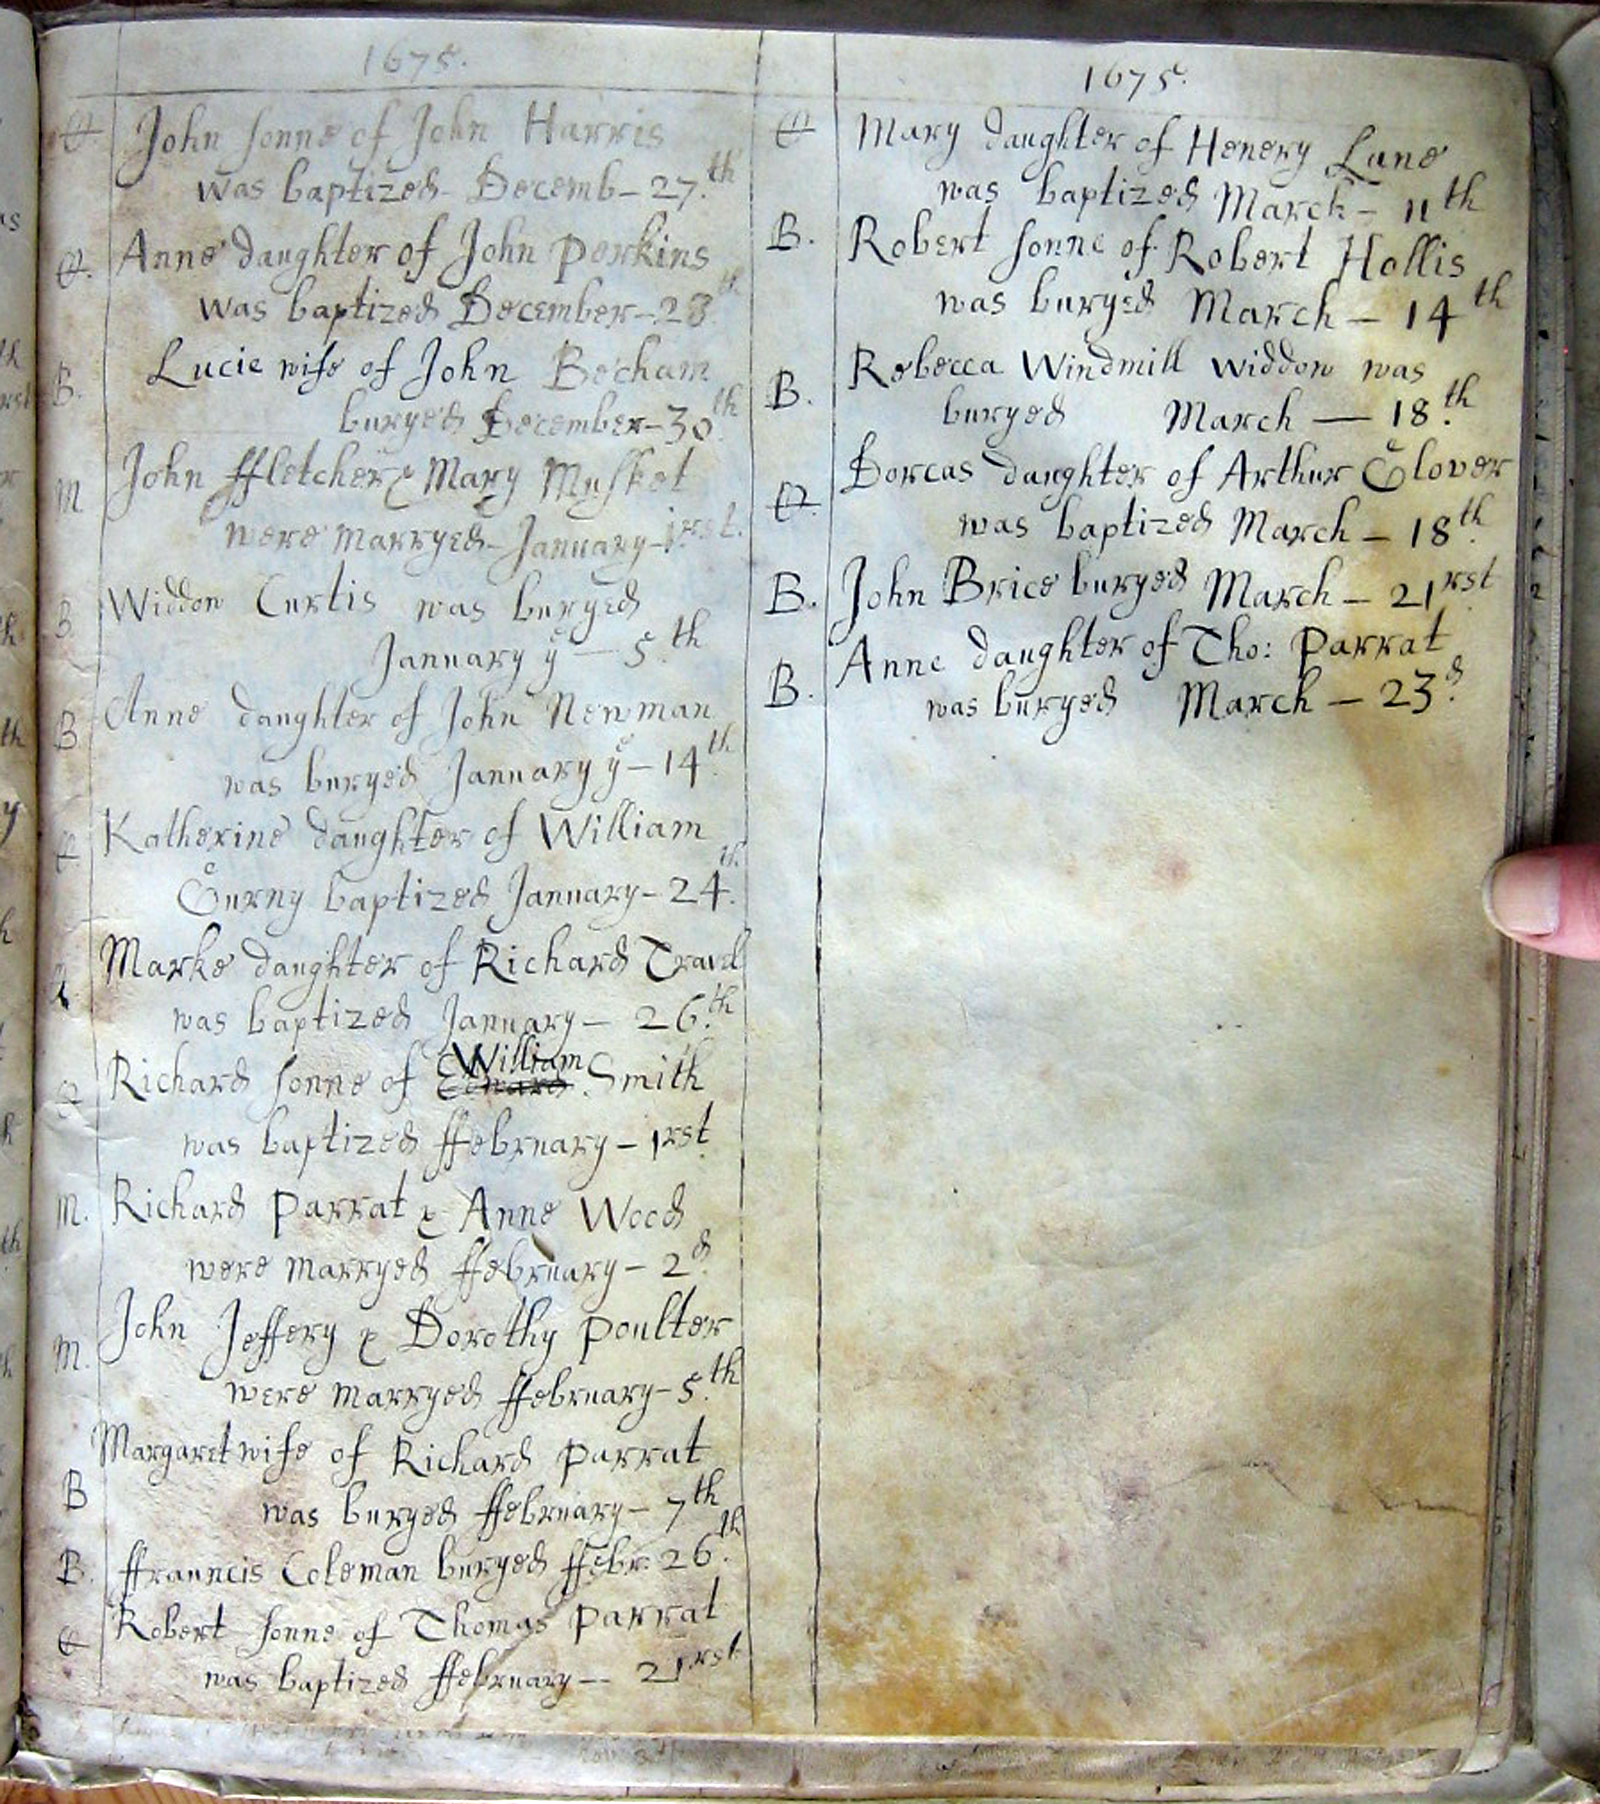 1675.
C. John sonne of John Harris
was baptized - Decemb - 27.th
C. Anne daughter of John Perkins
was baptized December - 28th
B. Lucie wife of John Becham
buryed December - 30.th
M John ffletcher & Mary Musket
were marryed - January - irst.
B. Widdow Curtis was buryed
January ye — 5.th
B Anne daughter of John Newman
was buryed January ye - 14.th
C Katherine daughter of William
Gurny baptized January - 24.th
Marke daughter of Richard Travel
was baptized January - 26.th
C Richard sonne of Edward William Smith
was baptized ffebruary - 1rst
M. Richard Parrat & Anne Wood
were marryed ffebruary - 2.d
M. John Jeffery & Dorothy Poulter
were marryed ffebruary - 5.th
Margaret wife of Richard Parrat
B was buryed ffebruary - 7th
B. ffrauncis Coleman buryed ffebr: 26.th
C Robert sonne of Thomas Parrat
was baptized ffebruary — 21rst
1675.
C Mary daughter of Henery Lane
was baptized March - 11th
B. Robert sonne of Robert Hollis
was buryed March — 14th
B. Rebecca Windmill widdow was
buryed March — 18.th
C. Dorcas daughter of Arthur Glover
was baptized March - 18th
B. John Brice buryed March - 21rst
B. Anne daughter of Tho: Parrat
was buryed March - 23.d